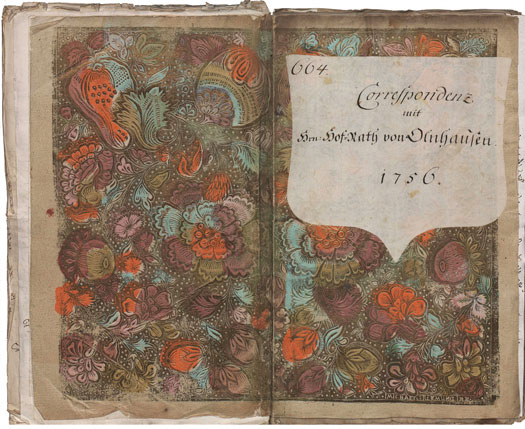 664.
Correspondenz
mit
Hrn: Hof-Rath von Olnhausen
1756.